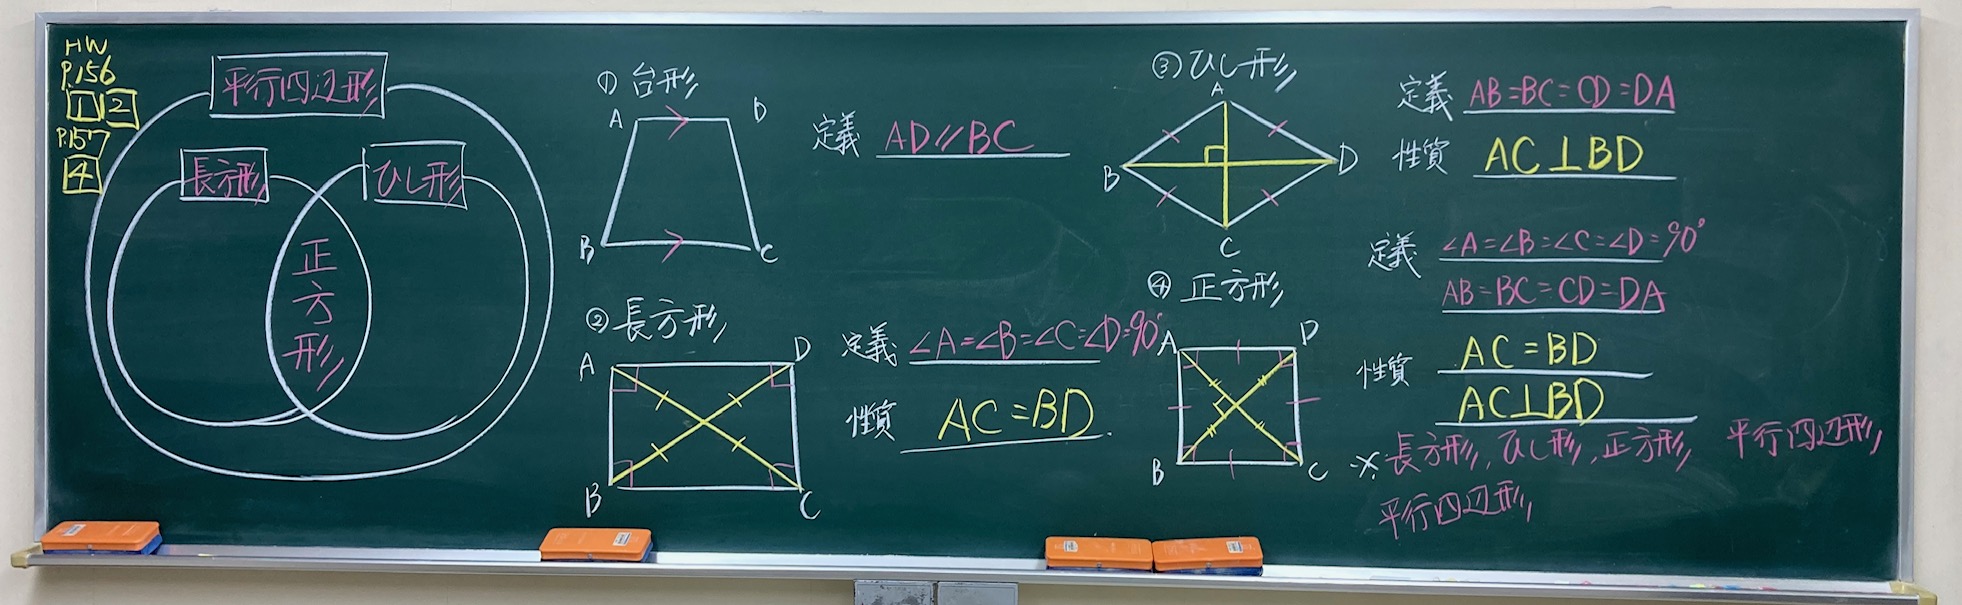 HW
P.156
1 2
P.157
4
平行四辺形
長方形
ひし形
正方形
① 台形
A D
B C
定義 AD∥BC
② 長方形
A D
B C
定義 ∠A=∠B=∠C=∠D=90°
性質 AC=BD
③ ひし形
A
B D
C
定義 AB=BC=CD=DA
性質 AC⊥BD
④ 正方形
A D
B C
定義 ∠A=∠B=∠C=∠D=90°
AB=BC=CD=DA
性質 AC=BD
AC⊥BD
※長方形,ひし形,正方形 平行四辺形
平行四辺形